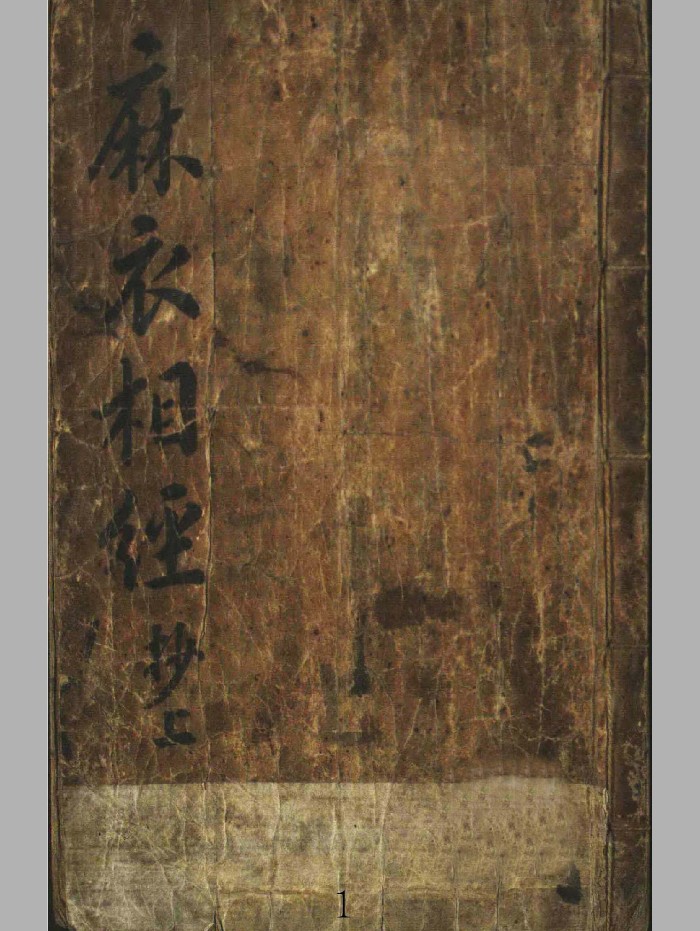 麻衣相經 抄上
1